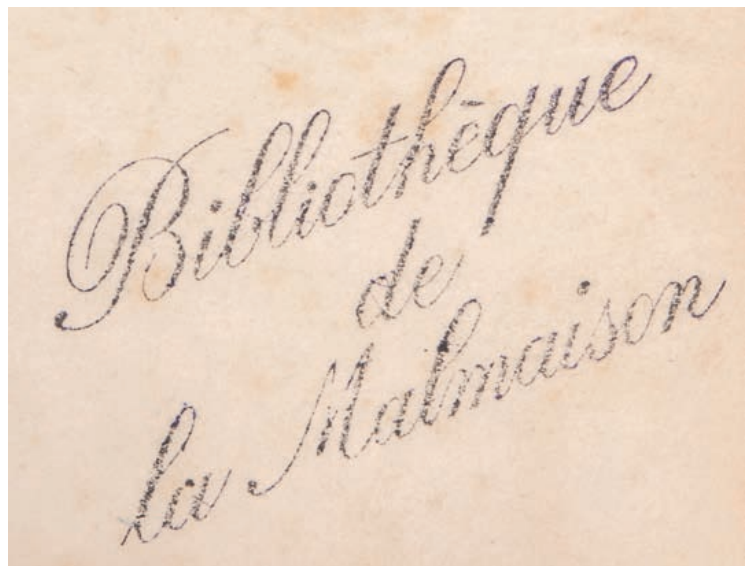 Bibliothèque
de
la Malmaison